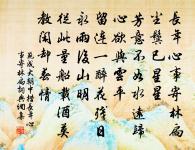 長年心事寄林扃
塵鬢已星星
芳意不如水遠歸
心欲與雲平
留連一醉花殘日
永雨後山明
從此量船載酒莫
教閑卻春情
范成大朝中措長年心
事寄林扃詞